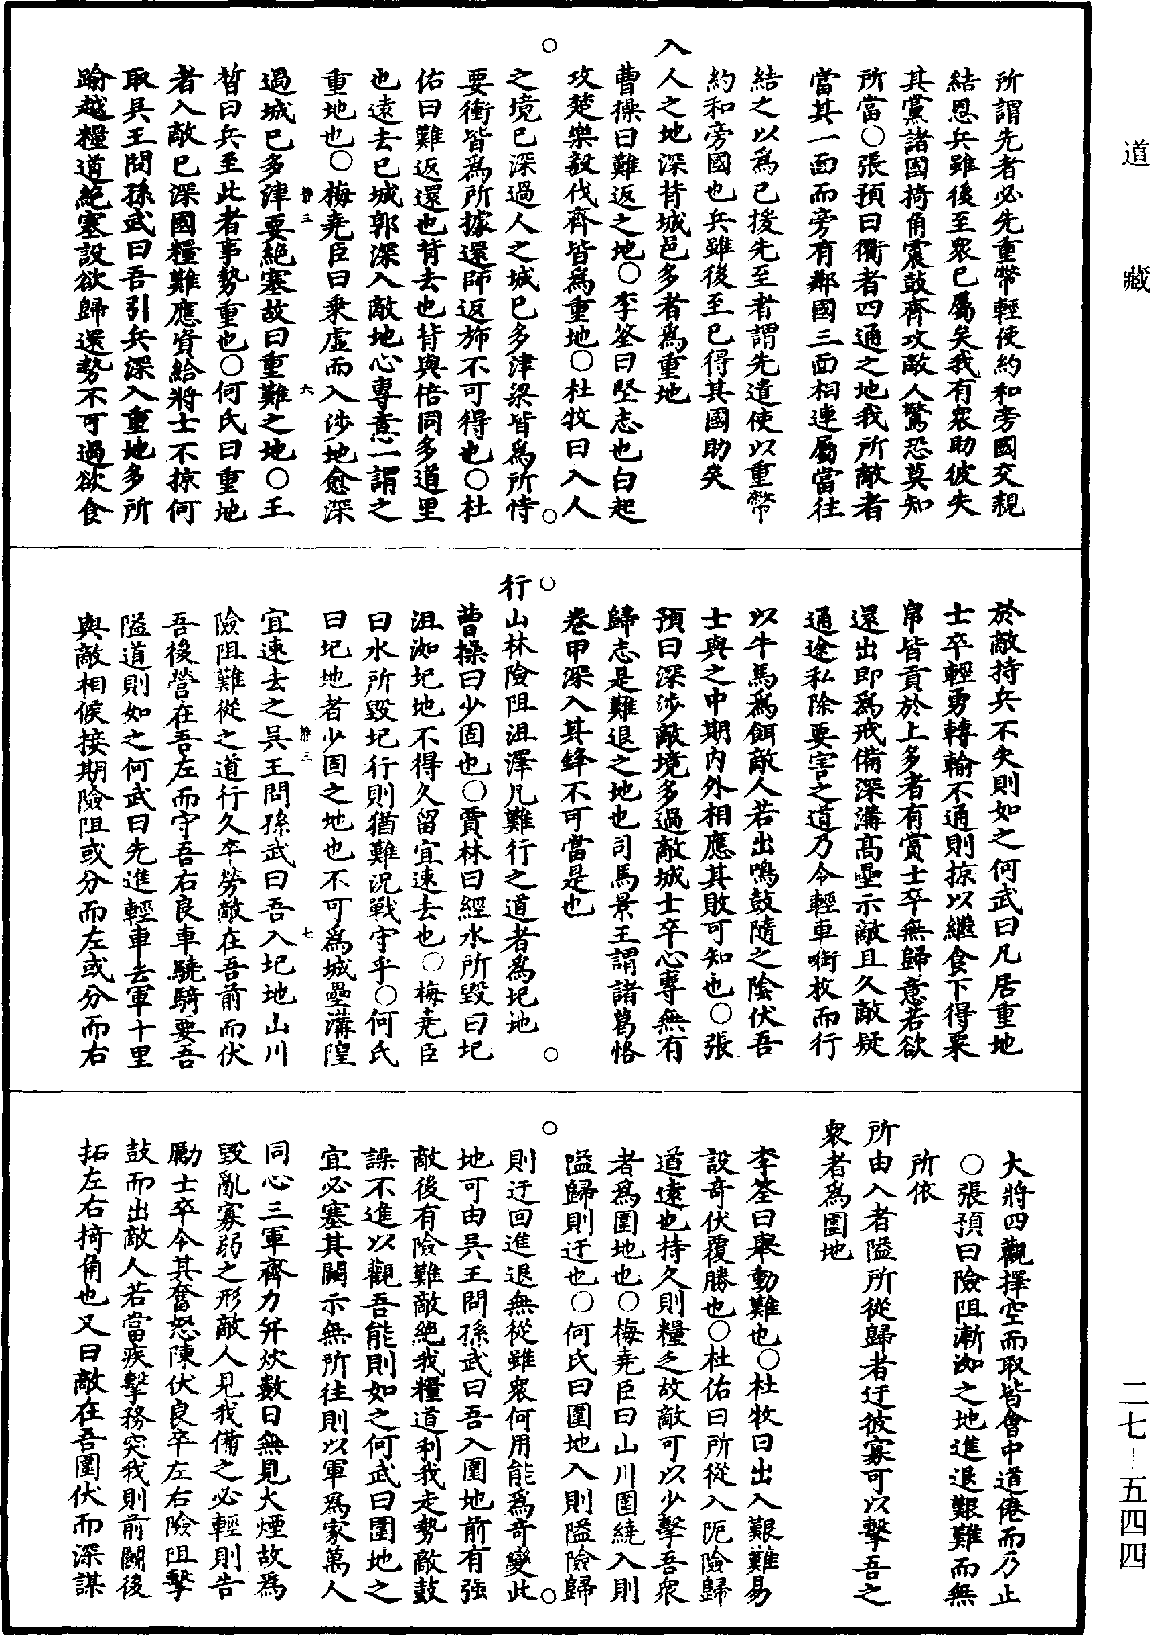 道藏
所謂先者必先重幣輕使約和旁國交親
結恩兵雖後至衆已屬矣我有衆助彼失
其黨諸國掎角震鼓齊攻敵人驚恐莫知
所當○張預曰衢者四通之地我所敵者
當其一面而旁有鄰國三面相連屬當往
結之以爲已援先至者謂先遣使以重幣
約和旁國也兵雖後至已得其國助矣
入人之地深背城邑多者爲重地
曹操曰難返之地○李筌曰堅志也白起
攻楚樂毅伐齊皆爲重地○杜牧曰入人
之境已深過人之城已多津梁皆爲所恃
要衝皆爲所據還師返旆不可得也○杜
佑曰難返還也背去也背與倍同多道里
也遠去已城郭深入敵地心專意一謂之
重地也○梅堯臣曰乗虛而入涉地愈深
過城已多津要絶塞故曰重難之地○王
晳曰兵至此者事勢重也○何氏曰重地
者入敵已深國糧難應資給將士不掠何
取吳王問孫武曰吾引兵深入重地多所
踰越糧道絶塞設欲歸還勢不可過欲食
於敵持兵不失則如之何武曰凡居重地
士卒輕勇轉輸不通則掠以繼食下得粟
帛皆貢於上多者有賞士卒無歸意若欲
還出即爲戒備深溝高壘示敵且久敵疑
通途私除要害之道乃令輕車銜枚而行
以牛馬爲餌敵人若出鳴鼓隨之陰伏吾
士與之中期内外相應其敗可知也○張
預曰深涉敵境多過敵城士卒心專無有
歸志是難退之地也司馬景王謂諸葛恪
卷甲深入其鋒不可當是也
行山林險阻沮澤凡難行之道者爲圮地
曹操曰少固也○賈林曰經水所毀曰圮
沮洳圮地不得久留宜速去也○梅堯臣
曰水所毀圮行則猶難況戰守乎○何氏
曰圮地者少固之地也不可爲城壘溝隍
宜速去之吳王問孫武曰吾入圮地山川
險阻難從之道行久卒勞敵在吾前而伏
吾後營在吾左而守吾右良車驍騎要吾
隘道則如之何武曰先進輕車去軍十里
與敵相候接期險阻或分而左或分而右
大將四觀擇空而取皆會中道倦而乃止
○張預曰險阻漸洳之地進退艱難而無
所依
所由入者隘所從歸者迂彼寡可以擊吾之
衆者爲圍地
李筌曰舉動難也○杜牧曰出入艱難易
設奇伏覆勝也○杜佑曰所從入阨險歸
道遠也持久則糧乏故敵可以少擊吾衆
者爲圍地也○梅堯臣曰山川圍繞入則
隘歸則迂也○何氏曰圍地入則隘險歸
則迂回進退無從雖衆何用能爲奇變此
地可由吳王問孫武曰吾入圍地前有強
敵後有險難敵絶我糧道利我走勢敵鼓
譟不進以觀吾能則如之何武曰圍地之
宜必塞其闕示無所往則以軍爲家萬人
同心三軍齊力并炊數日無見火煙故爲
毀亂寡弱之形敵人見我備之必輕則告
勵士卒令其奮怒陳伏良卒左右險阻擊
鼓而出敵人若當疾擊務突我則前鬭後
拓左右掎角也又曰敵在吾圍伏而深謀
二七-五四四